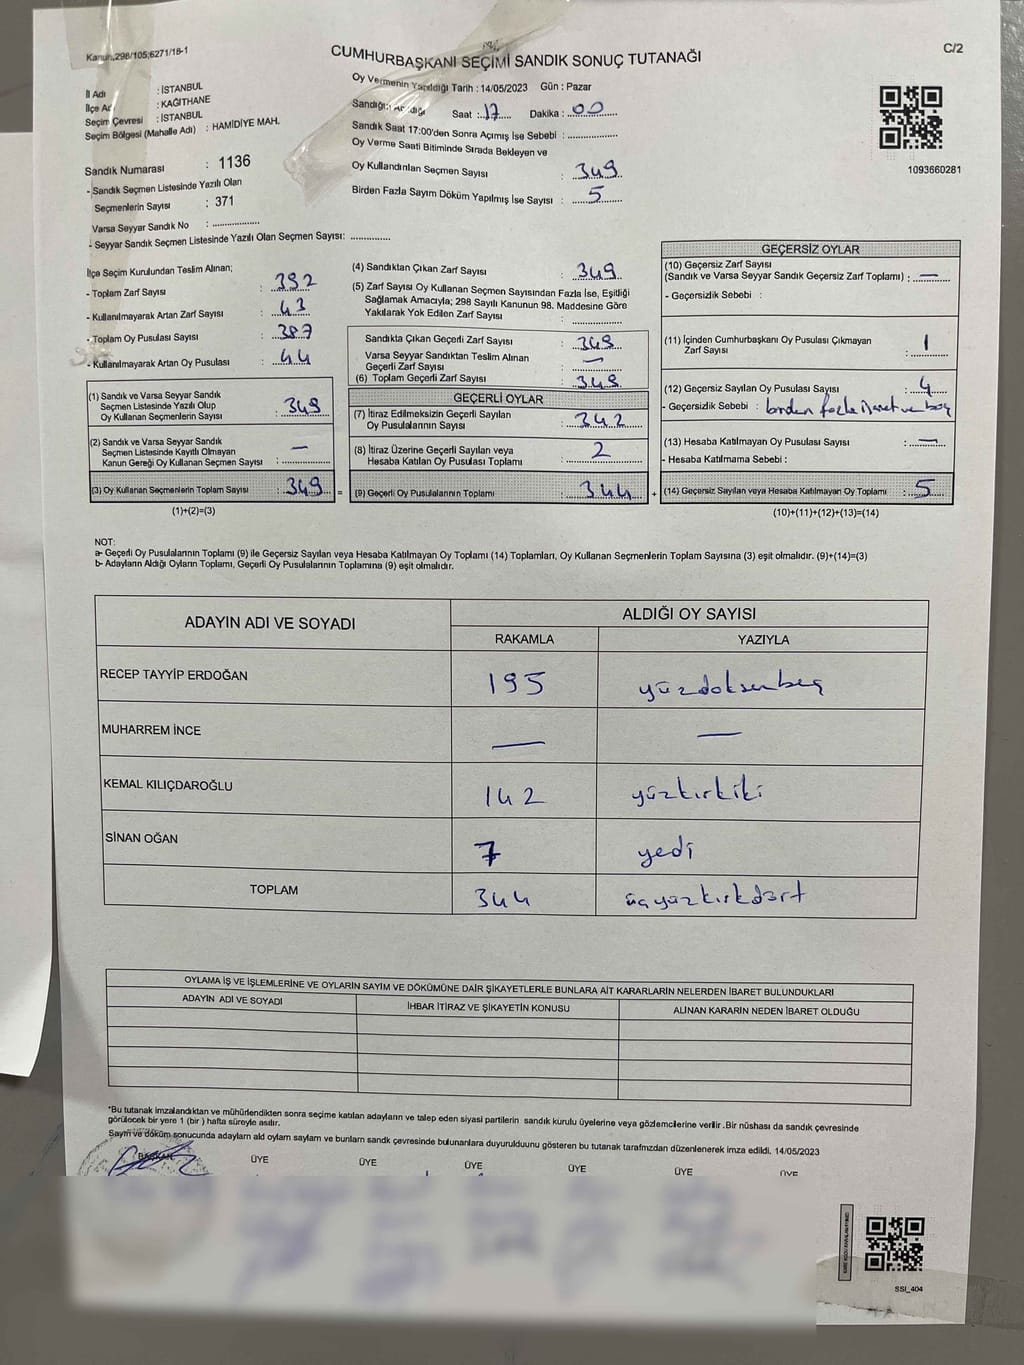 Kanun,298/105;6271/18-1
CUMHURBAŞKANI SEÇİMİ SANDIK SONUÇ TUTANAĞI
C/2
İl Adı : İSTANBUL
İlçe Adı : KAĞITHANE
Seçim Çevresi : İSTANBUL
Seçim Bölgesi (Mahalle Adı) : HAMİDİYE MAH.
Sandık Numarası : 1136
- Sandık Seçmen Listesinde Yazılı Olan
Seçmenlerin Sayısı : 371
Varsa Seyyar Sandık No : ..............
- Seyyar Sandık Seçmen Listesinde Yazılı Olan Seçmen Sayısı: ............
Oy Vermenin Yapıldığı Tarih : 14/05/2023 Gün : Pazar
Saat : 17 Dakika : 00
Sandık Saat 17:00'den Sonra Açımış İse Sebebi : ..............
Oy Verme Saati Bitiminde Sırada Bekleyen ve
Oy Kullandırılan Seçmen Sayısı : 349
Birden Fazla Sayım Döküm Yapılmış İse Sayısı : 5
1093660281
İlçe Seçim Kurulundan Teslim Alınan;
- Toplam Zarf Sayısı : 392
- Kullanılmayarak Artan Zarf Sayısı : 43
- Toplam Oy Pusulası Sayısı : 387
- Kullanılmayarak Artan Oy Pusulası : 44
(1) Sandık ve Varsa Seyyar Sandık
Seçmen Listesinde Yazılı Olup
Oy Kullanan Seçmenlerin Sayısı : 349
(2) Sandık ve Varsa Seyyar Sandık
Seçmen Listesinde Kayıtlı Olmayan
Kanun Gereği Oy Kullanan Seçmen Sayısı : —
(3) Oy Kullanan Seçmenlerin Toplam Sayısı : 349 =
(1)+(2)=(3)
(4) Sandıktan Çıkan Zarf Sayısı : 349
(5) Zarf Sayısı Oy Kullanan Seçmen Sayısından Fazla İse, Eşitliği
Sağlamak Amacıyla; 298 Sayılı Kanunun 98. Maddesine Göre
Yakılarak Yok Edilen Zarf Sayısı : ..............
Sandıkta Çıkan Geçerli Zarf Sayısı : 349
Varsa Seyyar Sandıktan Teslim Alınan
Geçerli Zarf Sayısı : —
(6) Toplam Geçerli Zarf Sayısı : 349
GEÇERLİ OYLAR
(7) İtiraz Edilmeksizin Geçerli Sayılan
Oy Pusulalarının Sayısı : 342
(8) İtiraz Üzerine Geçerli Sayılan veya
Hesaba Katılan Oy Pusulası Toplamı : 2
(9) Geçerli Oy Pusulalarının Toplamı : 344 +
GEÇERSİZ OYLAR
(10) Geçersiz Zarf Sayısı
(Sandık ve Varsa Seyyar Sandık Geçersiz Zarf Toplamı) : —
- Geçersizlik Sebebi :
(11) İçinden Cumhurbaşkanı Oy Pusulası Çıkmayan
Zarf Sayısı : 1
(12) Geçersiz Sayılan Oy Pusulası Sayısı : 4
- Geçersizlik Sebebi : birden fazla işaret ve boş
(13) Hesaba Katılmayan Oy Pusulası Sayısı : —
- Hesaba Katılmama Sebebi :
(14) Geçersiz Sayılan veya Hesaba Katılmayan Oy Toplamı : 5
(10)+(11)+(12)+(13)=(14)
NOT:
a- Geçerli Oy Pusulalarının Toplamı (9) ile Geçersiz Sayılan veya Hesaba Katılmayan Oy Toplamı (14) Toplamları, Oy Kullanan Seçmenlerin Toplam Sayısına (3) eşit olmalıdır. (9)+(14)=(3)
b- Adayların Aldığı Oyların Toplamı, Geçerli Oy Pusulalarının Toplamına (9) eşit olmalıdır.
ADAYIN ADI VE SOYADI ALDIĞI OY SAYISI
RAKAMLA YAZIYLA
RECEP TAYYİP ERDOĞAN 195 yüzdoksanbeş
MUHARREM İNCE — —
KEMAL KILIÇDAROĞLU 142 yüzkırkiki
SİNAN OĞAN 7 yedi
TOPLAM 344 üçyüzkırkdört
OYLAMA İŞ VE İŞLEMLERİNE VE OYLARIN SAYIM VE DÖKÜMÜNE DAİR ŞİKAYETLERLE BUNLARA AİT KARARLARIN NELERDEN İBARET BULUNDUKLARI
ADAYIN ADI VE SOYADI İHBAR İTİRAZ VE ŞİKAYETİN KONUSU ALINAN KARARIN NEDEN İBARET OLDUĞU
*Bu tutanak imzalandıktan ve mühürlendikten sonra seçime katılan adayların ve talep eden siyasi partilerin sandık kurulu üyelerine veya gözlemcilerine verilir .Bir nüshası da sandık çevresinde
görülecek bir yere 1 (bir ) hafta süreyle asılır.
Sayım ve döküm sonucunda adayların aldı oyların sayları ve bunların sandık çevresinde bulunanlara duyurulduunu gösteren bu tutanak tarafmızdan düzenlenerek imza edildi. 14/05/2023
BAŞKAN ÜYE ÜYE ÜYE ÜYE ÜYE ÜYE
SSI_404